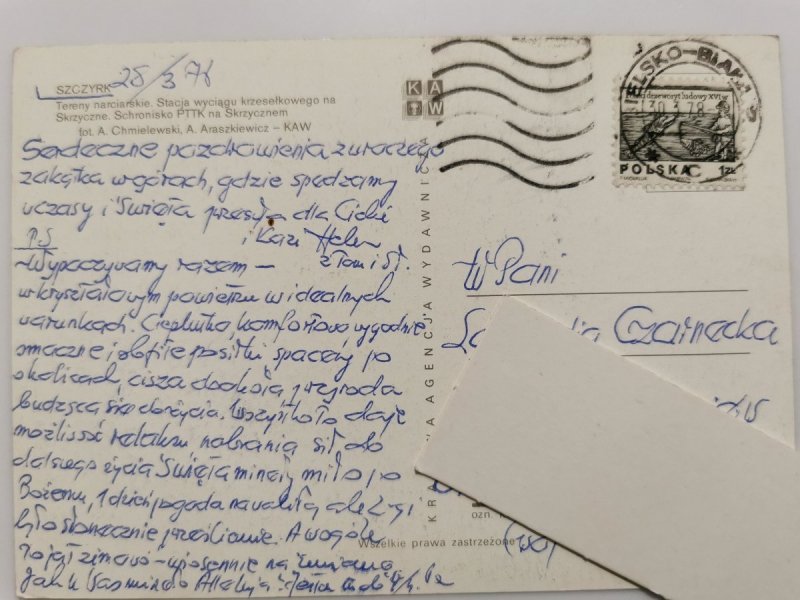 SZCZYRK 28/3 78
Tereny narciarskie. Stacja wyciągu krzesełkowego na
Skrzyczne. Schronisko PTTK na Skrzycznem
fot. A. Chmielewski, A. Araszkiewicz – KAW
Serdeczne pozdrowienia z uroczego
zakątka w górach, gdzie spędzamy
wczasy i Święta przesyła dla Ciebie
i Kazi Helen
P.S.
Wypoczywamy razem –
w kryształowym powietrzu w idealnych
warunkach. Cieplutko, komfortowo, wygodnie
smaczne i obfite posiłki spacery po
okolicach, cisza dookoła, przyroda
budząca się do życia. Wszystko to daje
możliwość relaksu nabrania sił do
dalszego życia Święta minęły miło po
Bożemu, 1 dzień pogoda
było słonecznie prześlicznie. A w ogóle
zimowo – wiosennie na zmianę
KAW
KRAJOWA AGENCJA WYDAWNICZA
Wszelkie prawa zastrzeżone
BIELSKO-BIAŁA
30.3.78
ludowy XVI w
POLSKA 1 ZŁ
W Pani
Czarnecka